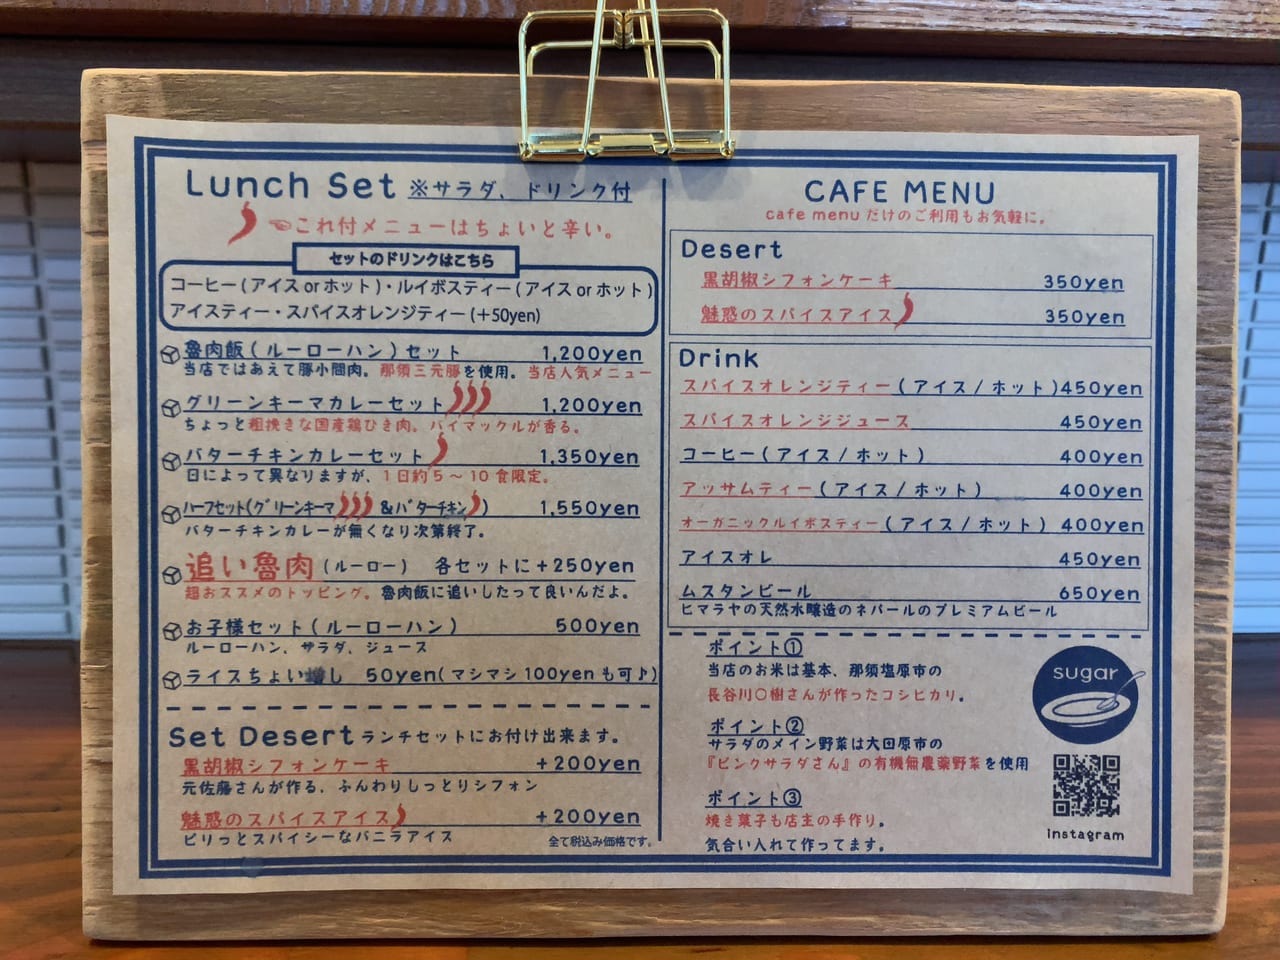 Lunch Set ※サラダ、ドリンク付
☜これ付メニューはちょいと辛い。
セットのドリンクはこちら
コーヒー(アイス or ホット)・ルイボスティー(アイス or ホット)
アイスティー・スパイスオレンジティー(+50yen)
魯肉飯(ルーローハン)セット 1,200yen
当店ではあえて豚小間肉。那須三元豚を使用。当店人気メニュー
グリーンキーマカレーセット 1,200yen
ちょっと粗挽きな国産鶏ひき肉。バイマックルが香る。
バターチキンカレーセット 1,350yen
日によって異なりますが、1日約5～10食限定。
ハーフセット(グリーンキーマ&バターチキン) 1,550yen
バターチキンカレーが無くなり次第終了。
追い魯肉(ルーロー) 各セットに+250yen
超おススメのトッピング。魯肉飯に追いしたって良いんだよ。
お子様セット(ルーローハン) 500yen
ルーローハン、サラダ、ジュース
ライスちょい増し 50yen(マシマシ100yenも可♪)
Set Desert ランチセットにお付け出来ます。
黒胡椒シフォンケーキ +200yen
元佐藤さんが作る、ふんわりしっとりシフォン
魅惑のスパイスアイス +200yen
ピリっとスパイシーなバニラアイス
全て税込み価格です。
CAFE MENU
cafe menu だけのご利用もお気軽に。
Desert
黒胡椒シフォンケーキ 350yen
魅惑のスパイスアイス 350yen
Drink
スパイスオレンジティー(アイス/ホット)450yen
スパイスオレンジジュース 450yen
コーヒー(アイス/ホット) 400yen
アッサムティー(アイス/ホット) 400yen
オーガニックルイボスティー(アイス/ホット) 400yen
アイスオレ 450yen
ムスタンビール 650yen
ヒマラヤの天然水醸造のネパールのプレミアムビール
ポイント①
当店のお米は基本、那須塩原市の
長谷川〇樹さんが作ったコシヒカリ。
ポイント②
サラダのメイン野菜は大田原市の
『ピンクサラダさん』の有機無農薬野菜を使用
ポイント③
焼き菓子も店主の手作り。
気合い入れて作ってます。
sugar
instagram